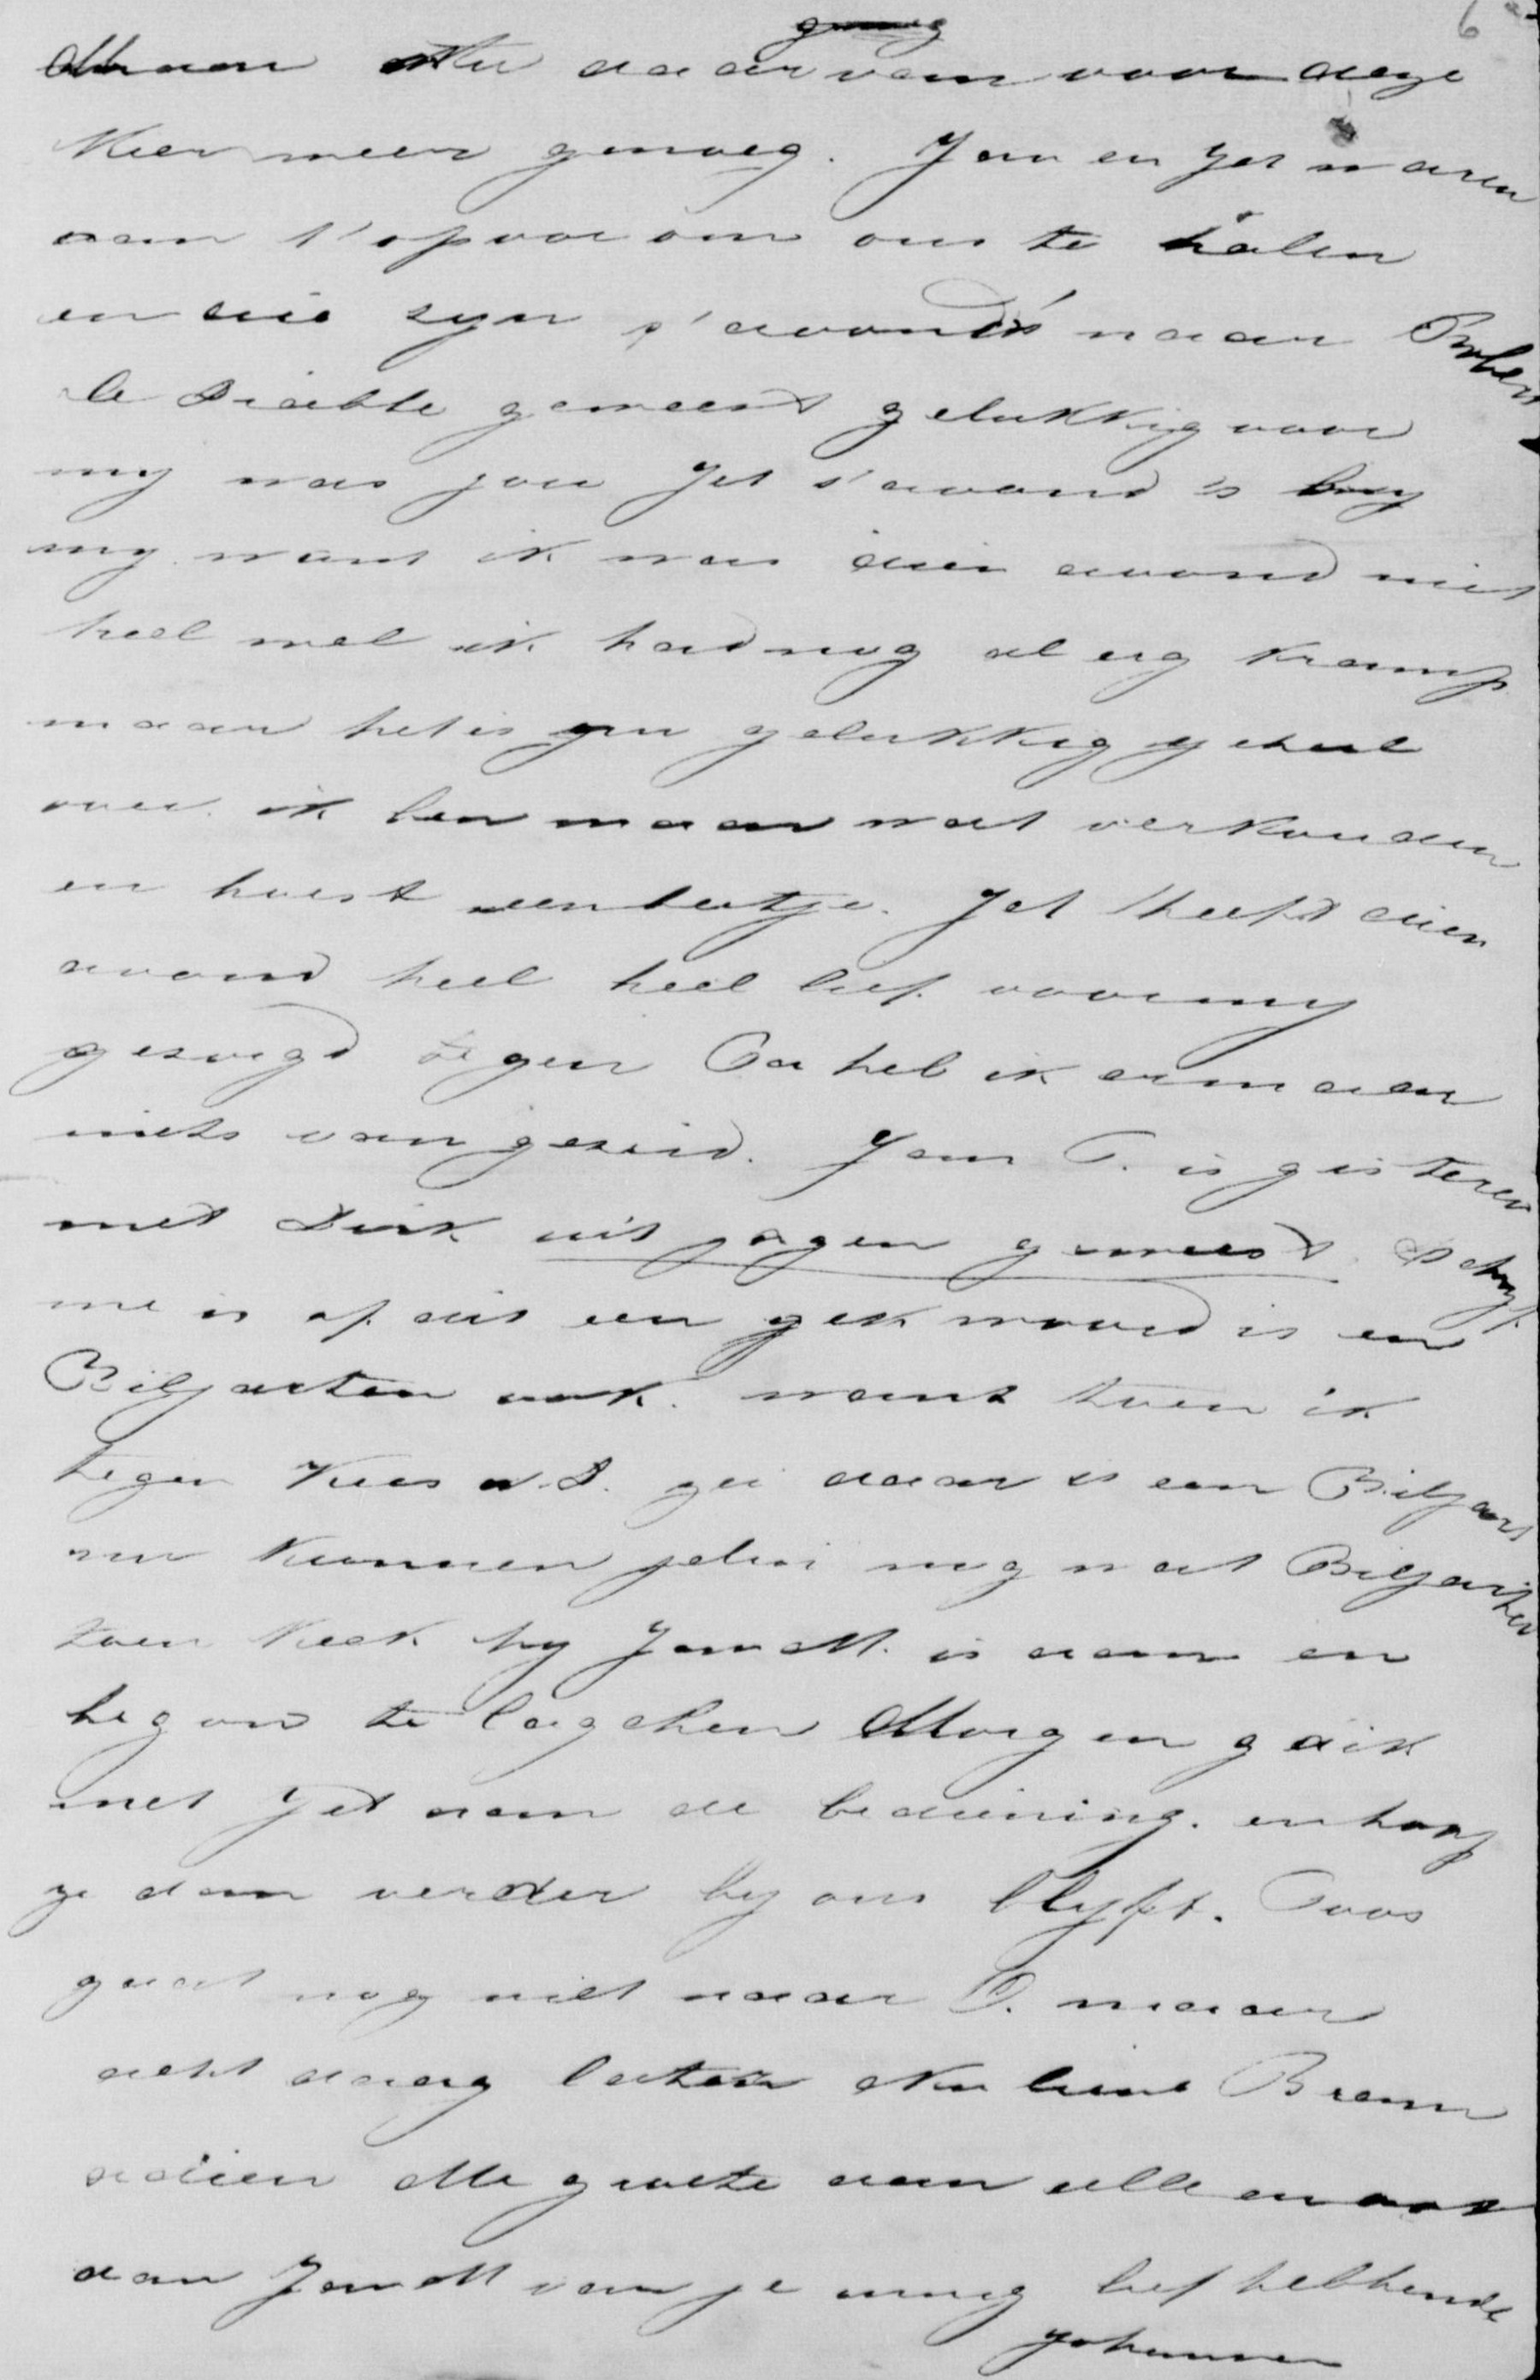 6
Maar Nu daarvan voor deze
Keer meer genoeg. Jan en Jet waren
aan 't spoor om ons te halen
en die zyn s'avonds naar Robert
le Diable geweest gelukkig voor
my was jou Jet s'avond's by
my want ik was dien avond niet
heel wel ik had nog al erg kramp
maar het is nu gelukkig geheel
over ik ben maar wat verkouden
en hoest een beetje. Jet heeft dien
avond heel heel lief voor my
gezorgd tegen Pa heb ik er maar
niets van gezeid. Jan P. is gisteren
met Dirk uit jagen geweest schryf
me is of dit een gek woord is en
Biljarten ook. want toen ik
tegen Kees v. D. zei daar is een Biljart
nu kunnen jelui nog wat Biljarten
toen keek hy Jan M. is aan en
begon te lagchen Morgen ga ik
met Jet aan de bediening. en hoop
ze dan verder by ons blyft. Toos
gaat nog niet naar D. maar
acht daag later Nu lieve Bram
adieu Me groete aan alle en ook
aan Jan M van je innig liefhebbende
Johanna